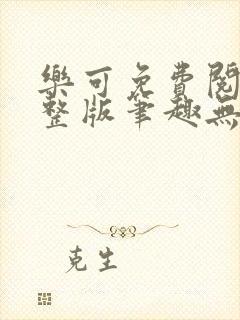 樂可免費閱
整版筆趣無
克生